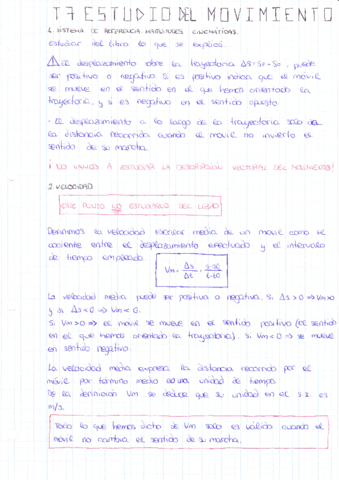 T7 ESTUDIO DEL MOVIMIENTO
1. SISTEMA DE REFERENCIA. MAGNITUDES CINEMÁTICAS.
Estudiar del libro lo que se explica.
⚠ El desplazamiento sobre la trayectoria ΔS = Sf - S0, puede
ser positivo o negativo. Si es positivo indica que el móvil
se mueve en el sentido en el que hemos orientado la
trayectoria, y si es negativo en el sentido opuesto.
- El desplazamiento a lo largo de la trayectoria solo da
la distancia recorrida cuando el móvil no invierte el
sentido de su marcha.
¡ NO VAMOS A ESTUDIAR LA DESCRIPCIÓN VECTORIAL DEL MOVIMIENTO!
2. VELOCIDAD
ESTE PUNTO LO ESTUDIAMOS DEL LIBRO
Definimos la velocidad escalar media de un móvil como el
cociente entre el desplazamiento efectuado y el intervalo
de tiempo empleado.
Vm = Δs / Δt = s - s0 / t - t0
La velocidad media puede ser positiva o negativa. Si Δs > 0 ⇒ Vm > 0
y si Δs < 0 ⇒ Vm < 0.
Si Vm > 0 ⇒ el móvil se mueve en el sentido positivo (el sentido
en el que hemos orientado la trayectoria). Si Vm < 0 ⇒ se mueve
en sentido negativo.
La velocidad media expresa la distancia recorrida por el
móvil por término medio en una unidad de tiempo.
De la definición Vm se deduce que su unidad en el S.I. es
m/s.
Todo lo que hemos dicho de Vm solo es válido cuando el
móvil no cambia el sentido de su marcha.